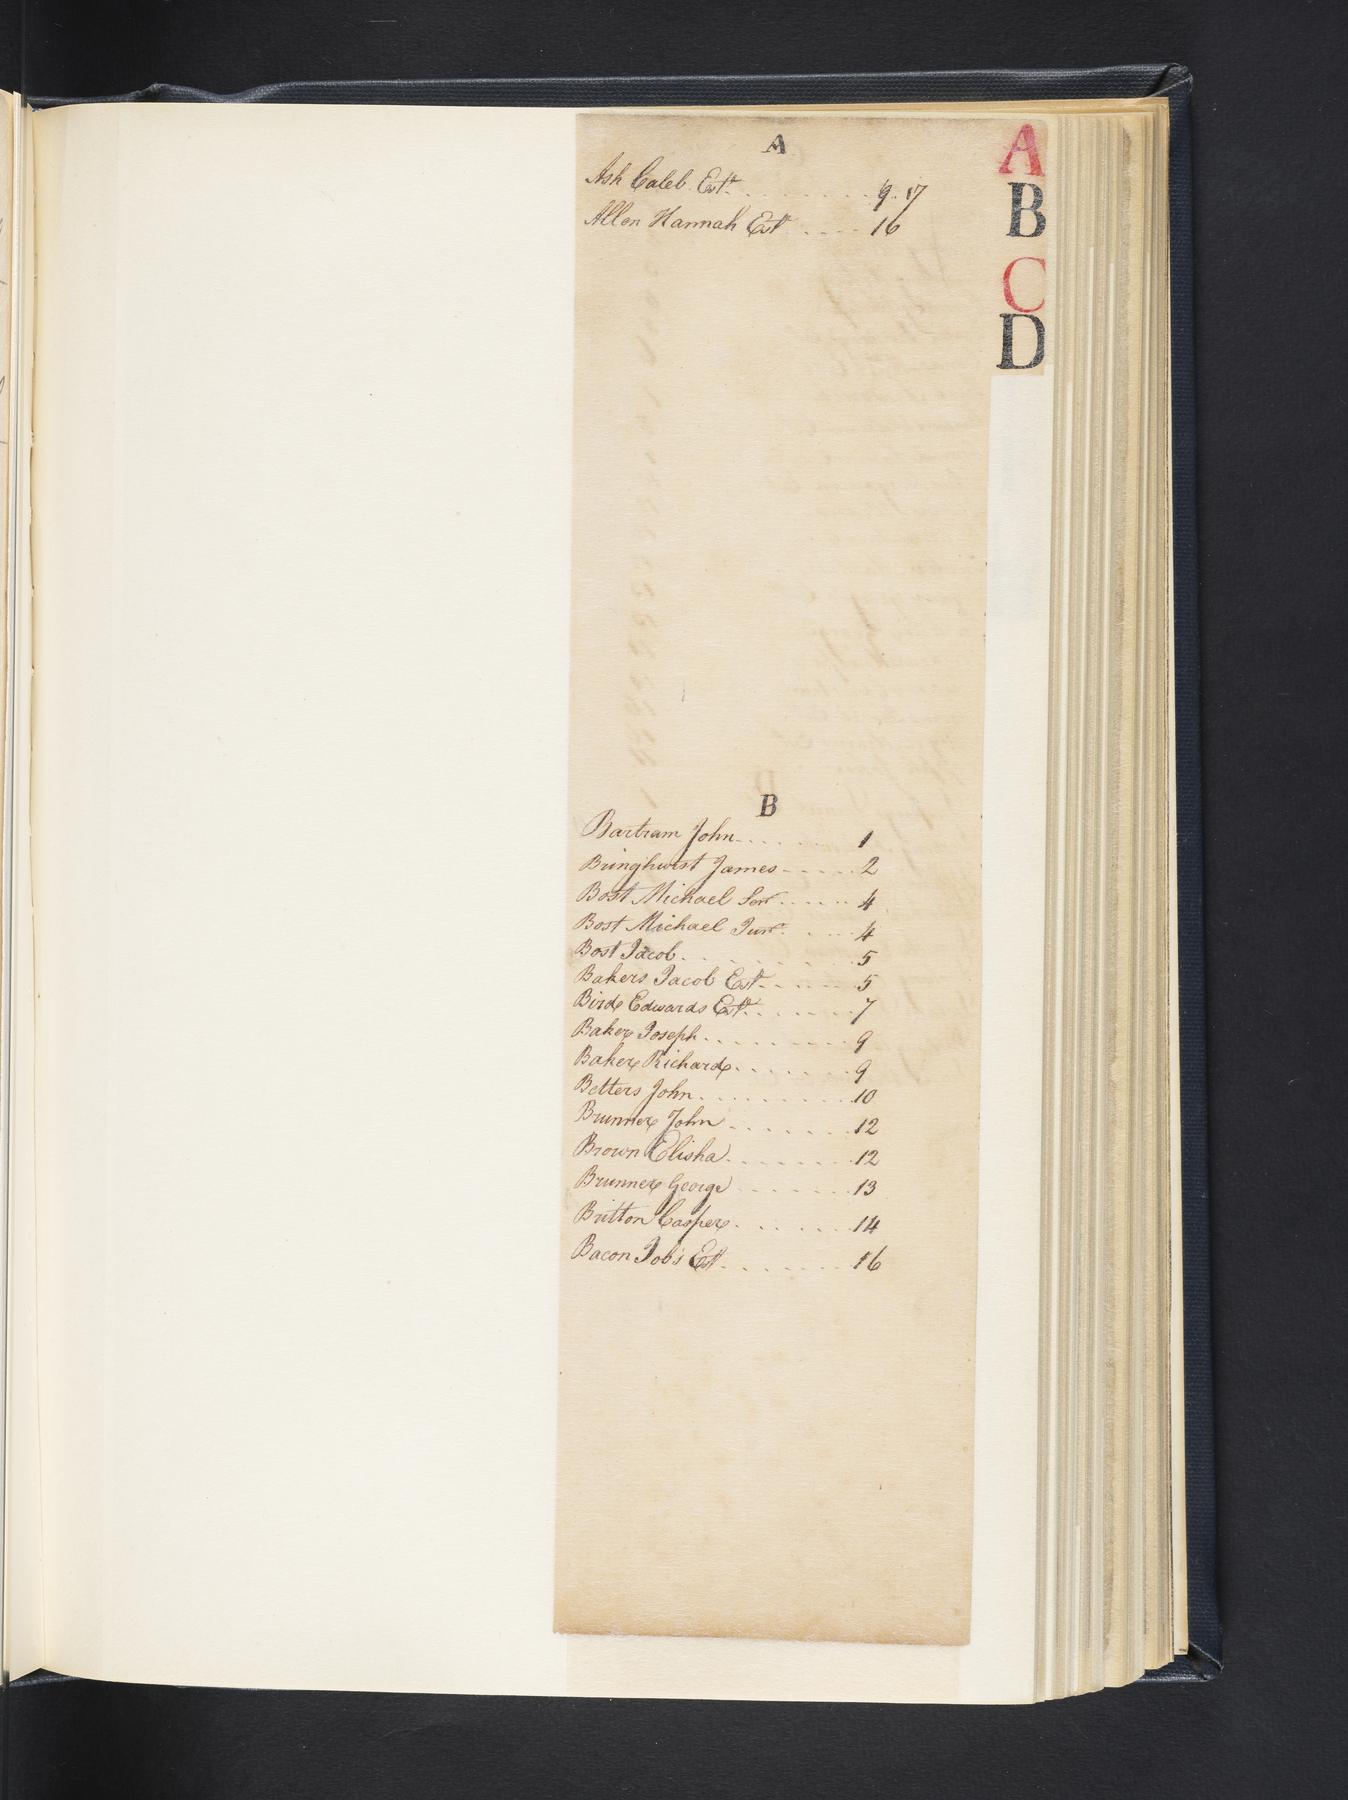 A
Ash Caleb Estt. . . . . . . . . 9. 17
Allen Hannah Est . . . . . 16
B
Bartram John . . . . . . . 1
Bringhurst James . . . . . 2
Bost Michael Senr . . . . . 4
Bost Michael Junr . . . . 4
Bost Jacob . . . . . . . . . 5
Bakers Jacob Est. . . . . . 5
Bird Edwards Est. . . . . . . 7
Baker Joseph . . . . . . . . . 9
Baker Richard . . . . . . . 9
Betters John . . . . . . . . . . 10
Brunner John . . . . . . . 12
Brown Elisha . . . . . . . . 12
Brunner George . . . . . . . 13
Britton Casper . . . . . . . 14
Bacon Job's Est . . . . . . . . 16
A
B
C
D